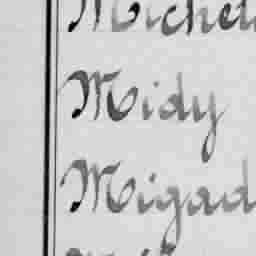 Michel
Midy
Migad